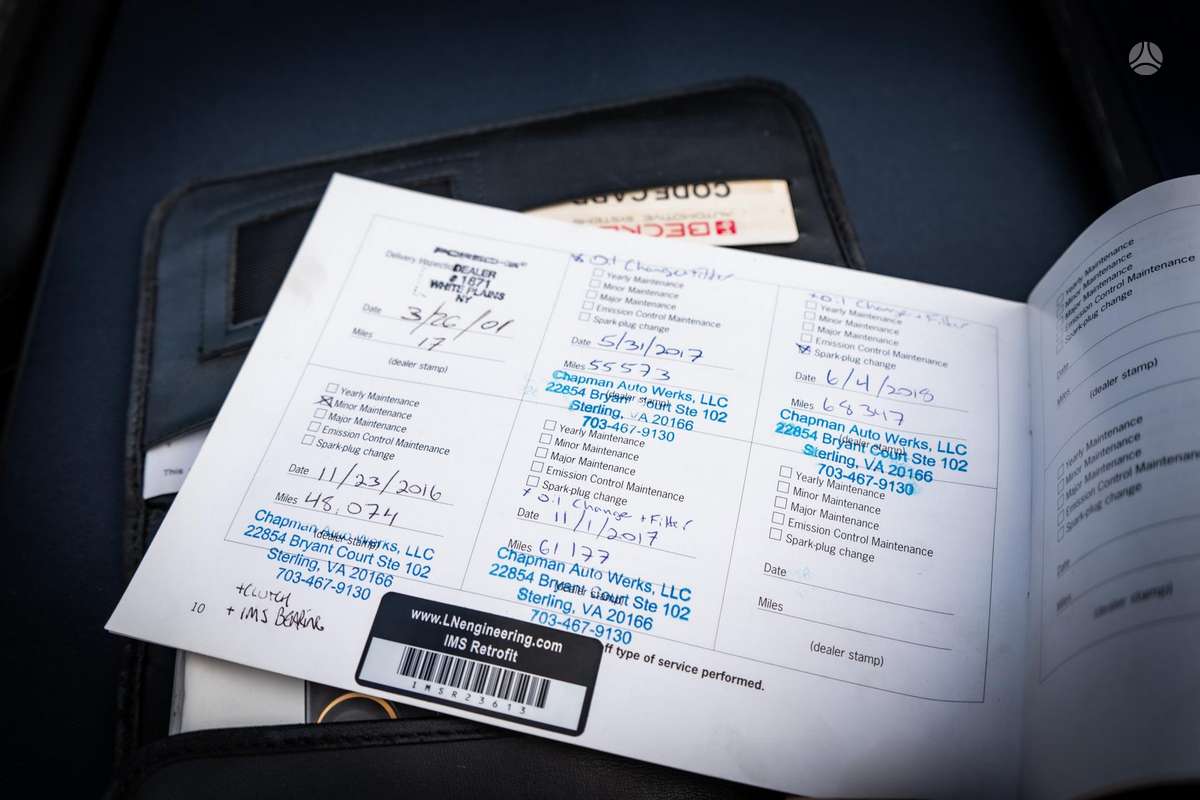 CODE CARD
AUTOMOTIVE SYSTEMS
BECKE
This
PORSCHE
Delivery Inspection
DEALER
# 1671
WHITE PLAINS
NY
Date 3/26/01
Miles 17
(dealer stamp)
Yearly Maintenance
Minor Maintenance
Major Maintenance
Emission Control Maintenance
Spark-plug change
Date 11/23/2016
Miles 48,074
(dealer stamp)
Chapman Auto Werks, LLC
22854 Bryant Court Ste 102
Sterling, VA 20166
703-467-9130
+CLUTCH
+ IMS BEARING
10
x Oil Change + Filter
Yearly Maintenance
Minor Maintenance
Major Maintenance
Emission Control Maintenance
Spark plug change
Date 5/31/2017
Miles 55573
(dealer stamp)
Chapman Auto Werks, LLC
22854 Bryant Court Ste 102
Sterling, VA 20166
703-467-9130
Yearly Maintenance
Minor Maintenance
Major Maintenance
Emission Control Maintenance
Spark-plug change
x Oil Change + Filter
Date 11/1/2017
Miles 61177
(dealer stamp)
Chapman Auto Werks, LLC
22854 Bryant Court Ste 102
Sterling, VA 20166
703-467-9130
x Oil Change + Filter
Yearly Maintenance
Minor Maintenance
Major Maintenance
Emission Control Maintenance
Spark-plug change
Date 6/4/2018
Miles 68347
(dealer stamp)
Chapman Auto Werks, LLC
22854 Bryant Court Ste 102
Sterling, VA 20166
703-467-9130
Yearly Maintenance
Minor Maintenance
Major Maintenance
Emission Control Maintenance
Spark-plug change
Date
Miles
(dealer stamp)
www.LNengineering.com
IMS Retrofit
IMSR23613
off type of service performed.
Yearly Maintenance
Minor Maintenance
Major Maintenance
Emission Control Maintenance
Spark-plug change
Date
Miles
(dealer stamp)
Yearly Maintenance
Minor Maintenance
Major Maintenance
Emission Control Maintenance
Spark-plug change
Date
Miles
(dealer stamp)